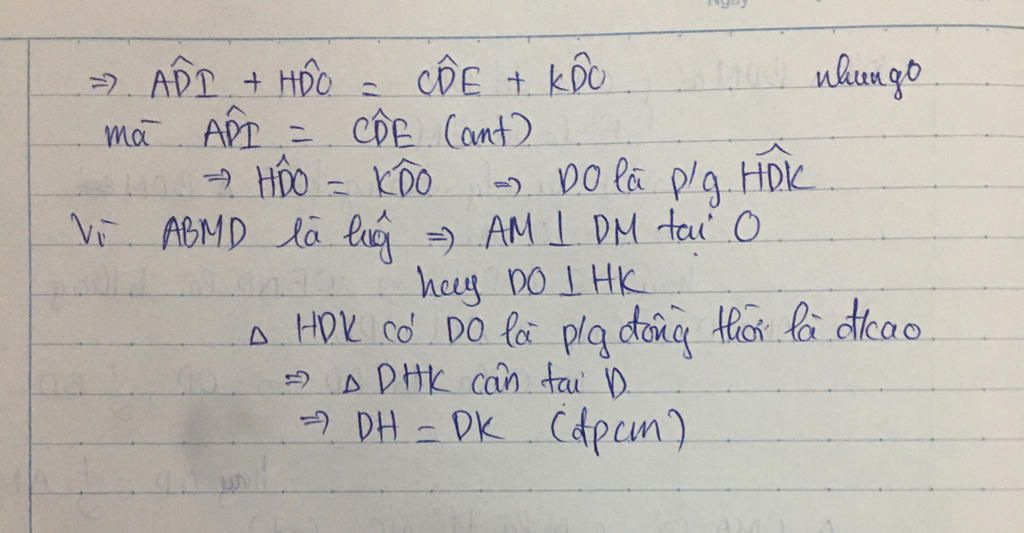 Ngày
⇒ AD̂I + HD̂O = CD̂E + KD̂O nhungo
mà AD̂I = CD̂E (cmt)
⇒ HD̂O = KD̂O ⇒ DO là p/g HDK̂
Vì ABMD là ⇒ AM ⊥ DM tại O
hay DO ⊥ HK
△ HDK có DO là p/g đồng thời là đ/cao
⇒ △ DHK cân tại D
⇒ DH = DK (đpcm)